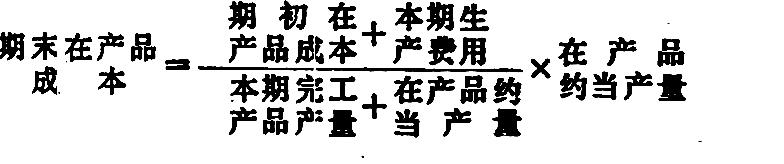 期末在产品成本=
期初在产品成本+本期生产费用
本期完工产品产量+在产品约当产量
×在产品约当产量